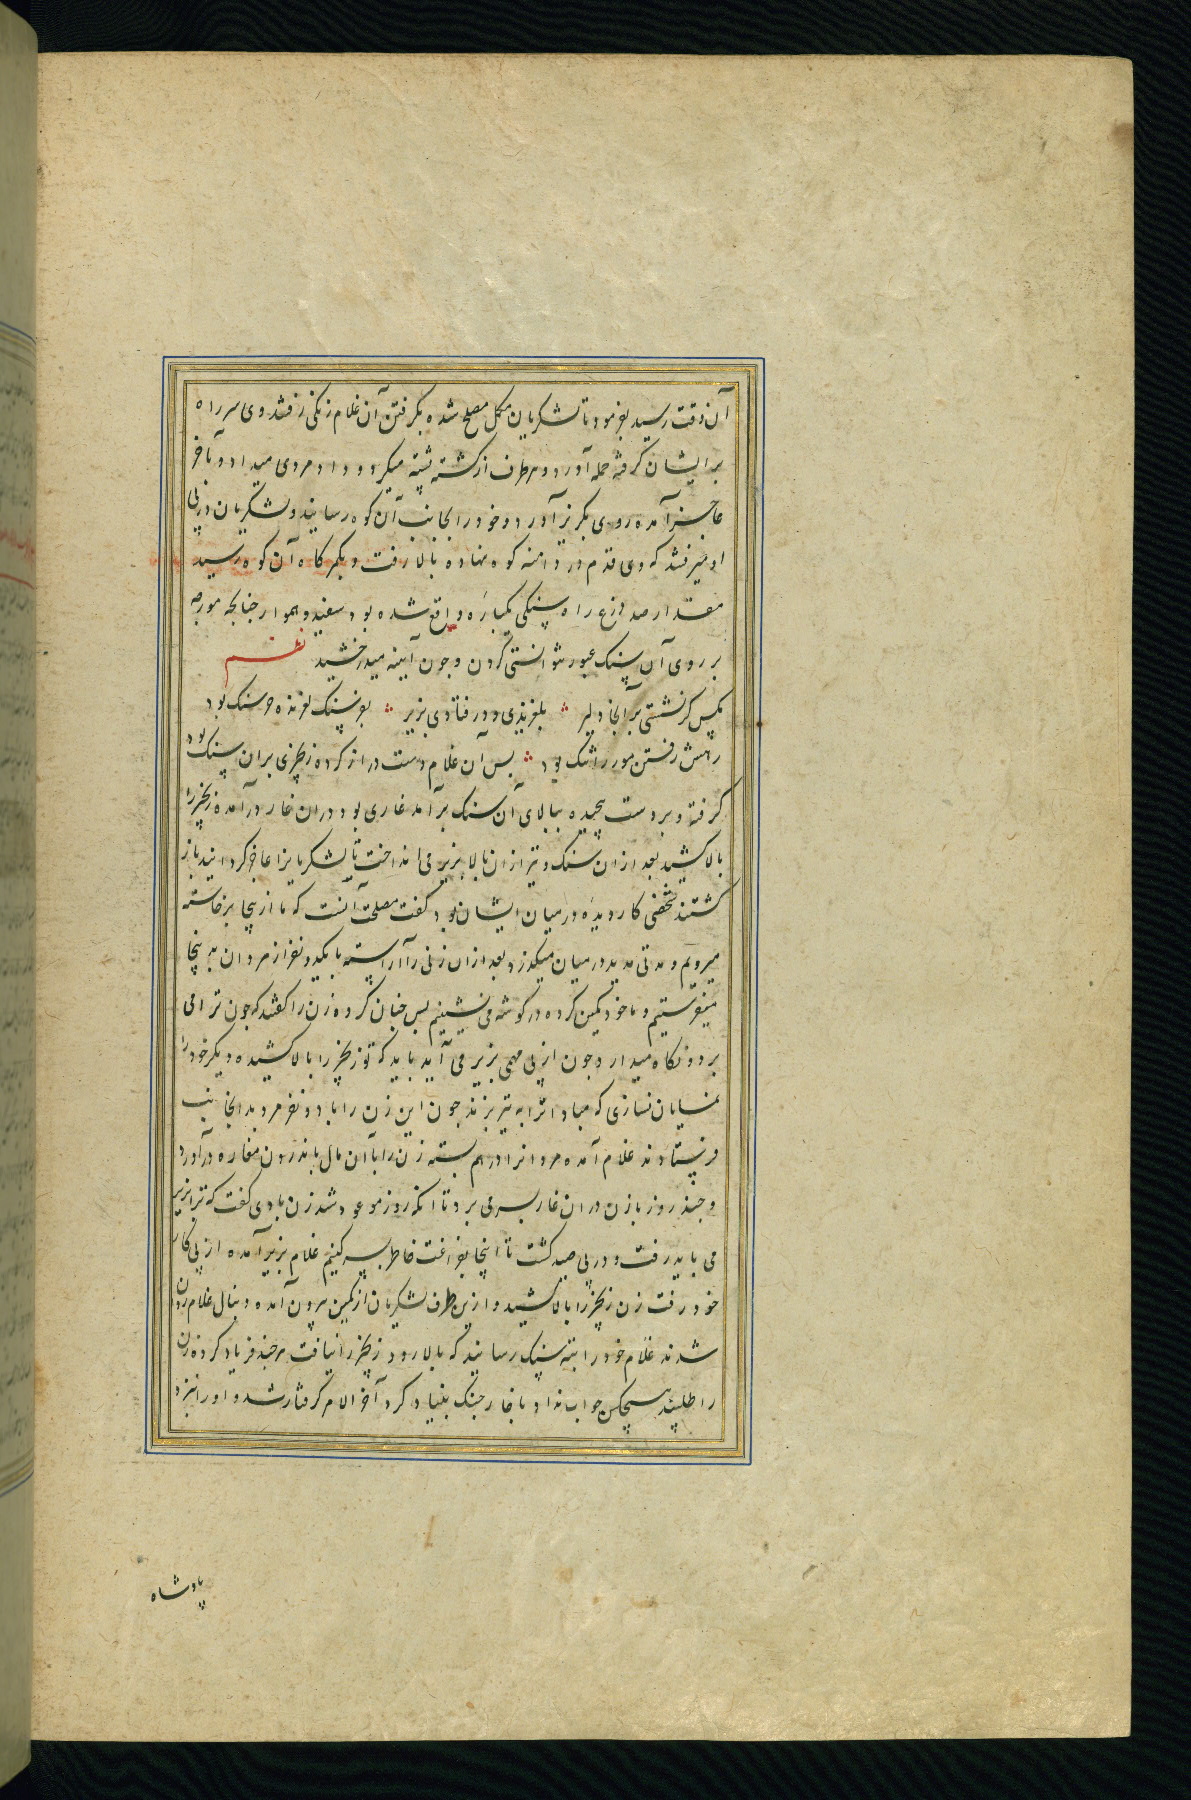 آن وقت رسید بفرمود تا لشکریان مکمل مصلح شده بگرفتن آن غلام زنگی رفتند وی سر راه
برایشان گرفته حمله آورد و هر طرف از کشته پشته میکرد و داد مردی میداد و بآخر
عاجز آمده روی بگریز آورد و خود را بجانب آن کوه رسانید و لشکریان در پی
او میرفتند که وی قدم در دامنه کوه نهاده بالا رفت و بکمرگاه آن کوه رسید
مقدار صد زرع راه سنکی یکباره واقع شده بود سفید و هموار جنانجه مورجه
بر روی آن سنک عبور نتوانستی کردن و جون آیینه میدرخشید نظم
مکس کر نشستی بر آنجا دلیر ؞ بلغزیدی و در فتادی بزیر ؞ بغر سنک لغزنده جر سنک بود
رهش رفتن مور را تنک بود ؞ بس آن غلام دست دراز کرده زنجیری بران سنک بود
کرفته و بر دست پیچیده ببالای آن سنک برآمد غاری بود دران غار درآمده زنجیر را
بالا کشید بعد ازان سنک و تیر ازان بالا بزیر می انداخت تا لشکریانرا عاجز کردانید باز
کشتند شخصی کاردیده درمیان ایشان بود کفت مصلحت آنست که ما ازینجا برخاسته
میرویم و مدتی مدید درمیان میکذرد بعد ازان زنی را آراسته با یکدو نفر از مردان به اینجا
میفرستیم و ما خود کمین کرده در کوشه می نشینیم بس جنان کرده زن را کفتند که جون ترا می
برد و نکاه میدارد جون از پی مهمی بزیر می آید باید که تو زنجیر را بالا کشیده دیکر خود را
نمایان نسازی که مبادا ترا به تیر بزند جون این زن را با دو نفر مرد بدانجانب
فرستادند غلام آمده مردانرا درهم بسته زن را باآن مال باندرون مغاره درآورد
و جند روز بازن دران غار بسر می برد تا آنکه روز موعود شد زن با وی کفت که ترا بزیر
می باید رفت و در پی صید کشت تا اینجا بفراغت خاطر بسر کنیم غلام بزیر آمده از پی کار
خود رفت زن زنجیر را بالا کشید و ازین طرف لشکریان از کمین بیرون آمده دنبال غلام روان
شدند غلام خود را به ته سنک رسانید که بالا رود زنجیر را نیافت هرجند فریاد کرده زن
را طلبید هیچکس جواب نداد ناجار جنک بنیاد کرد آخر الامر کرفتار شد و او را نزد
پادشاه